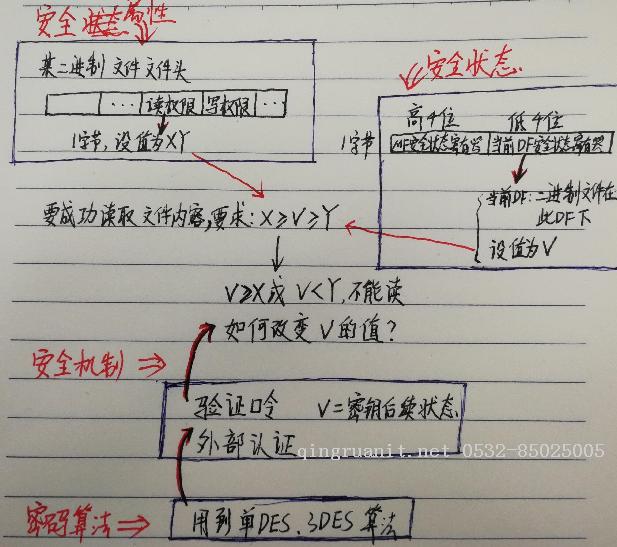 安全状态属性
某二进制文件文件头
… 读权限 写权限 …
1字节,设值为XY
安全状态
高4位 低4位
1字节 MF安全状态寄存器 当前DF安全状态寄存器
当前DF:二进制文件在
此DF下
设值为V
要成功读取文件内容,要求:X≥V≥Y
V≥X或V<Y,不能读
如何改变V的值?
安全机制
验证口令 V=密钥后续状态
外部认证
qingruanit.net 0532-85025005
密码算法
用到单DES、3DES算法